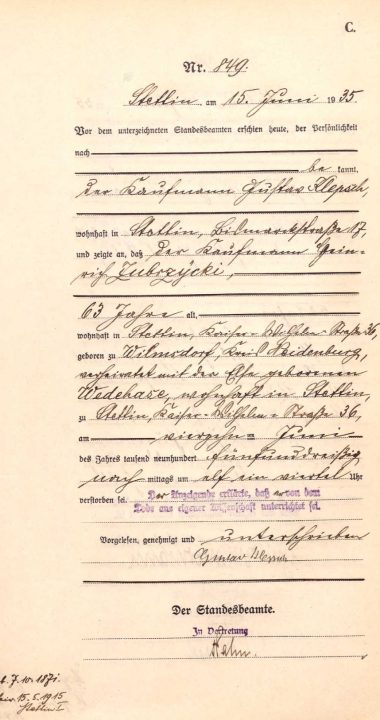 C.
Nr. 849.
Stettin am 15. Juni 1935.
Vor dem unterzeichneten Standesbeamten erschien heute, der Persönlichkeit
nach
be kannt,
der Kaufmann Gustav Klepsch,
wohnhaft in Stettin, Bismarckstraße 17,
und zeigte an, daß der Kaufmann Hein-
rich Zubrzycki,
63 Jahre alt,
wohnhaft in Stettin, Kaiser-Wilhelm-Straße 36,
geboren zu Wilmsdorf, Kreis Neidenburg,
verheiratet mit der Else geborenen
wohnhaft in Stettin,
zu Stettin, Kaiser-Wilhelm-Straße 36,
am vierzehn- Juni
des Jahres tausend neunhundert fünfunddreißig
nach mittags um elf ein viertel Uhr
verstorben sei. Der Anzeigende erklärte, daß er von dem
Tode aus eigener Wissenschaft unterrichtet sei.
Vorgelesen, genehmigt und unterschrieben
Gustav Klepsch
Der Standesbeamte.
In Vertretung
7. 10. 1871.
15. 5. 1915
Stettin I